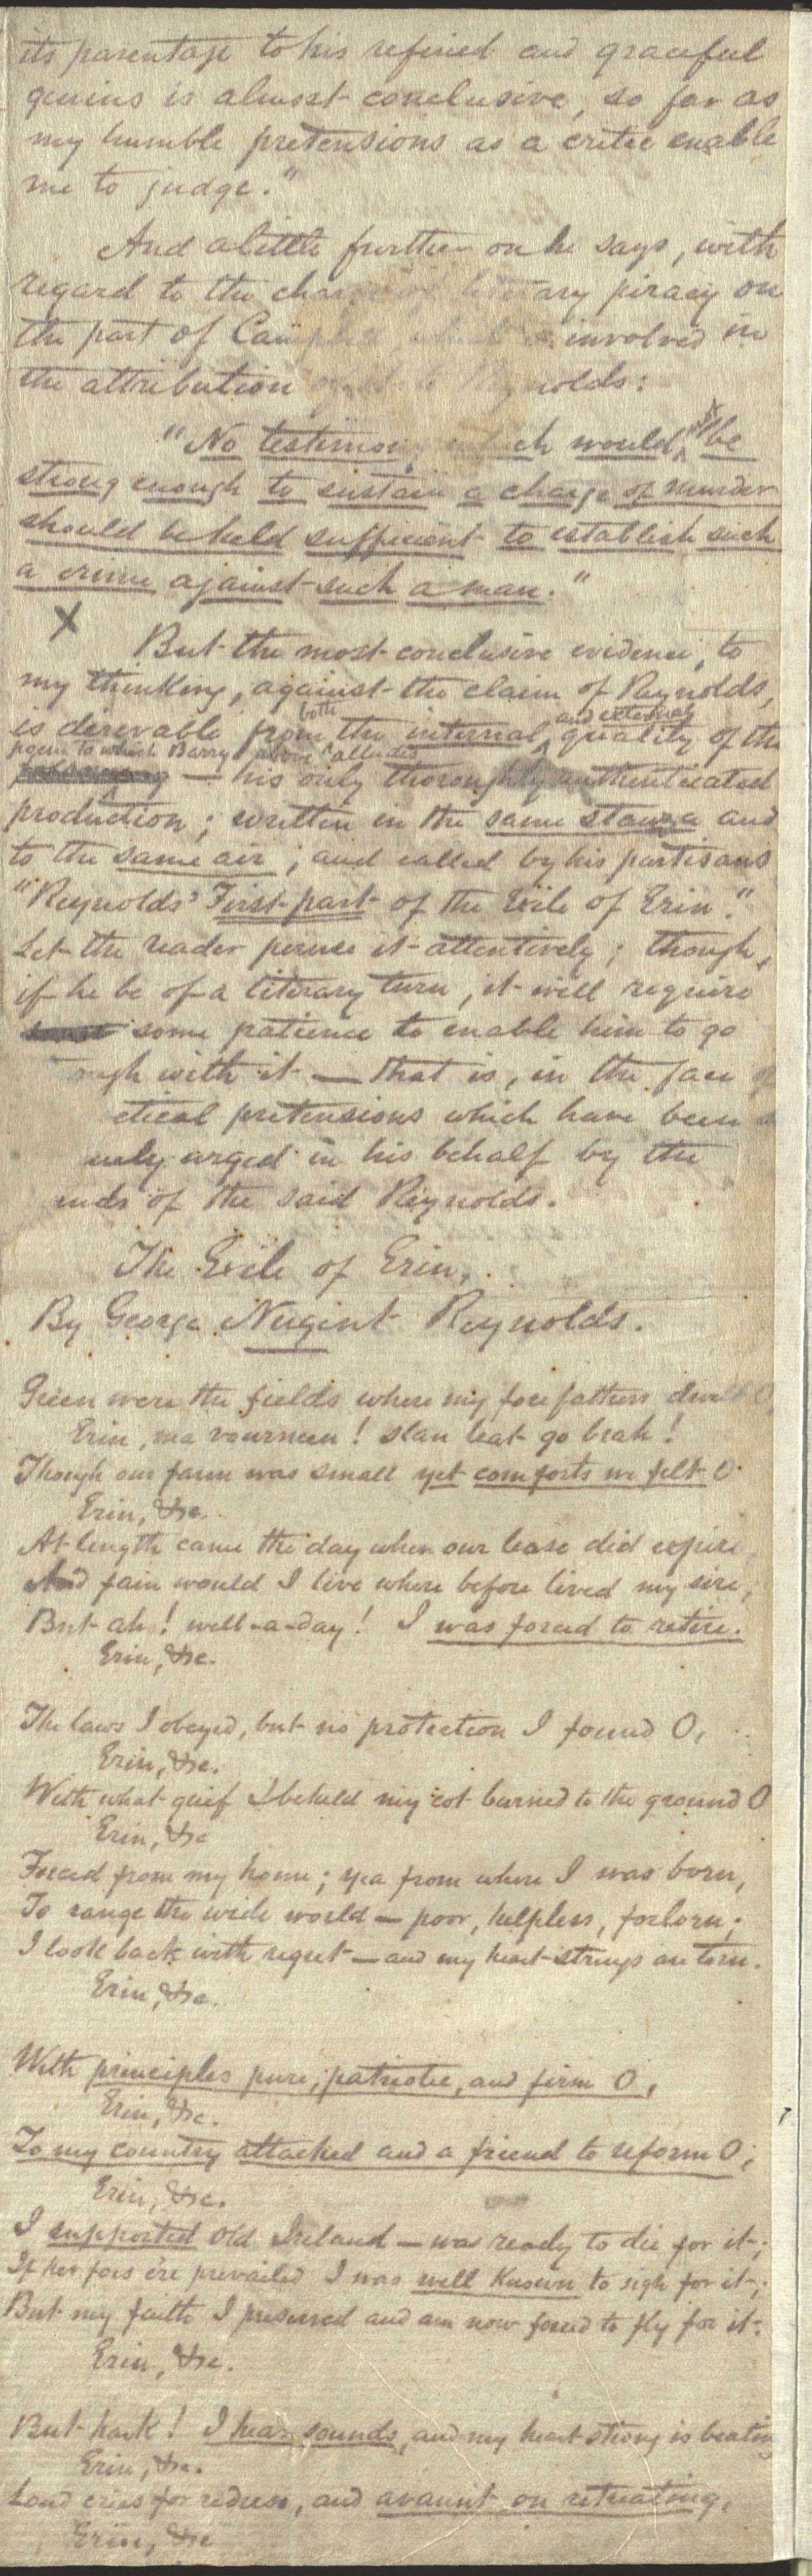 its parentage to his refined and graceful
genius is almost conclusive, so far as
my humble pretensions as a critic enable
me to judge."
And a little further on he says, with
regard to the literary piracy on
the part of involved in
the attribution
"No testimony which would not be
strong enough to sustain a charge of murder
should be held sufficient to establish such
a crime against such a man."
X
But the most conclusive evidence, to
my thinking, against the claim of Reynolds,
is derivable from both the internal and external quality of the
poem to which Barry above alludes
— his only thoroughly authenticated
production; written in the same stanza and
to the same air; and called by his partisans
"Reynolds' First part of the Exile of Erin."
Let the reader peruse it attentively; though,
if he be of a literary turn, it will require
some patience to enable him to go
ugh with it — that is, in the face of
etical pretensions which have been
urged in his behalf by the
ends of the said Reynolds.
The Exile of Erin,
By George Nugent Reynolds.
Green were the fields where my forefathers dwelt O
Erin, ma vourneen! slan leat go brah!
Though our farm was small yet comforts we felt O
Erin, &c.
At length came the day when our lease did expire,
And fain would I live where before lived my sire,
But ah! well-a-day! I was forced to retire.
Erin, &c.
The laws I obeyed, but no protection I found O,
Erin, &c.
With what grief I beheld my cot burned to the ground O
Erin, &c
Forced from my home; yea from where I was born,
To range the wide world — poor, helpless, forlorn;
I look back with regret — and my heart-strings are torn.
Erin, &c.
With principles pure, patriotic, and firm O,
Erin, &c.
To my country attached and a friend to reform O,
Erin, &c.
I supported old Ireland — was ready to die for it;
If her foes e're prevailed I was well known to sigh for it;
But my faith I preserved and am now forced to fly for it.
Erin, &c.
But hark! I hear sounds, and my heart strong is beating
Erin, &c.
Loud cries for redress, and avaunt on retreating,
Erin, &c